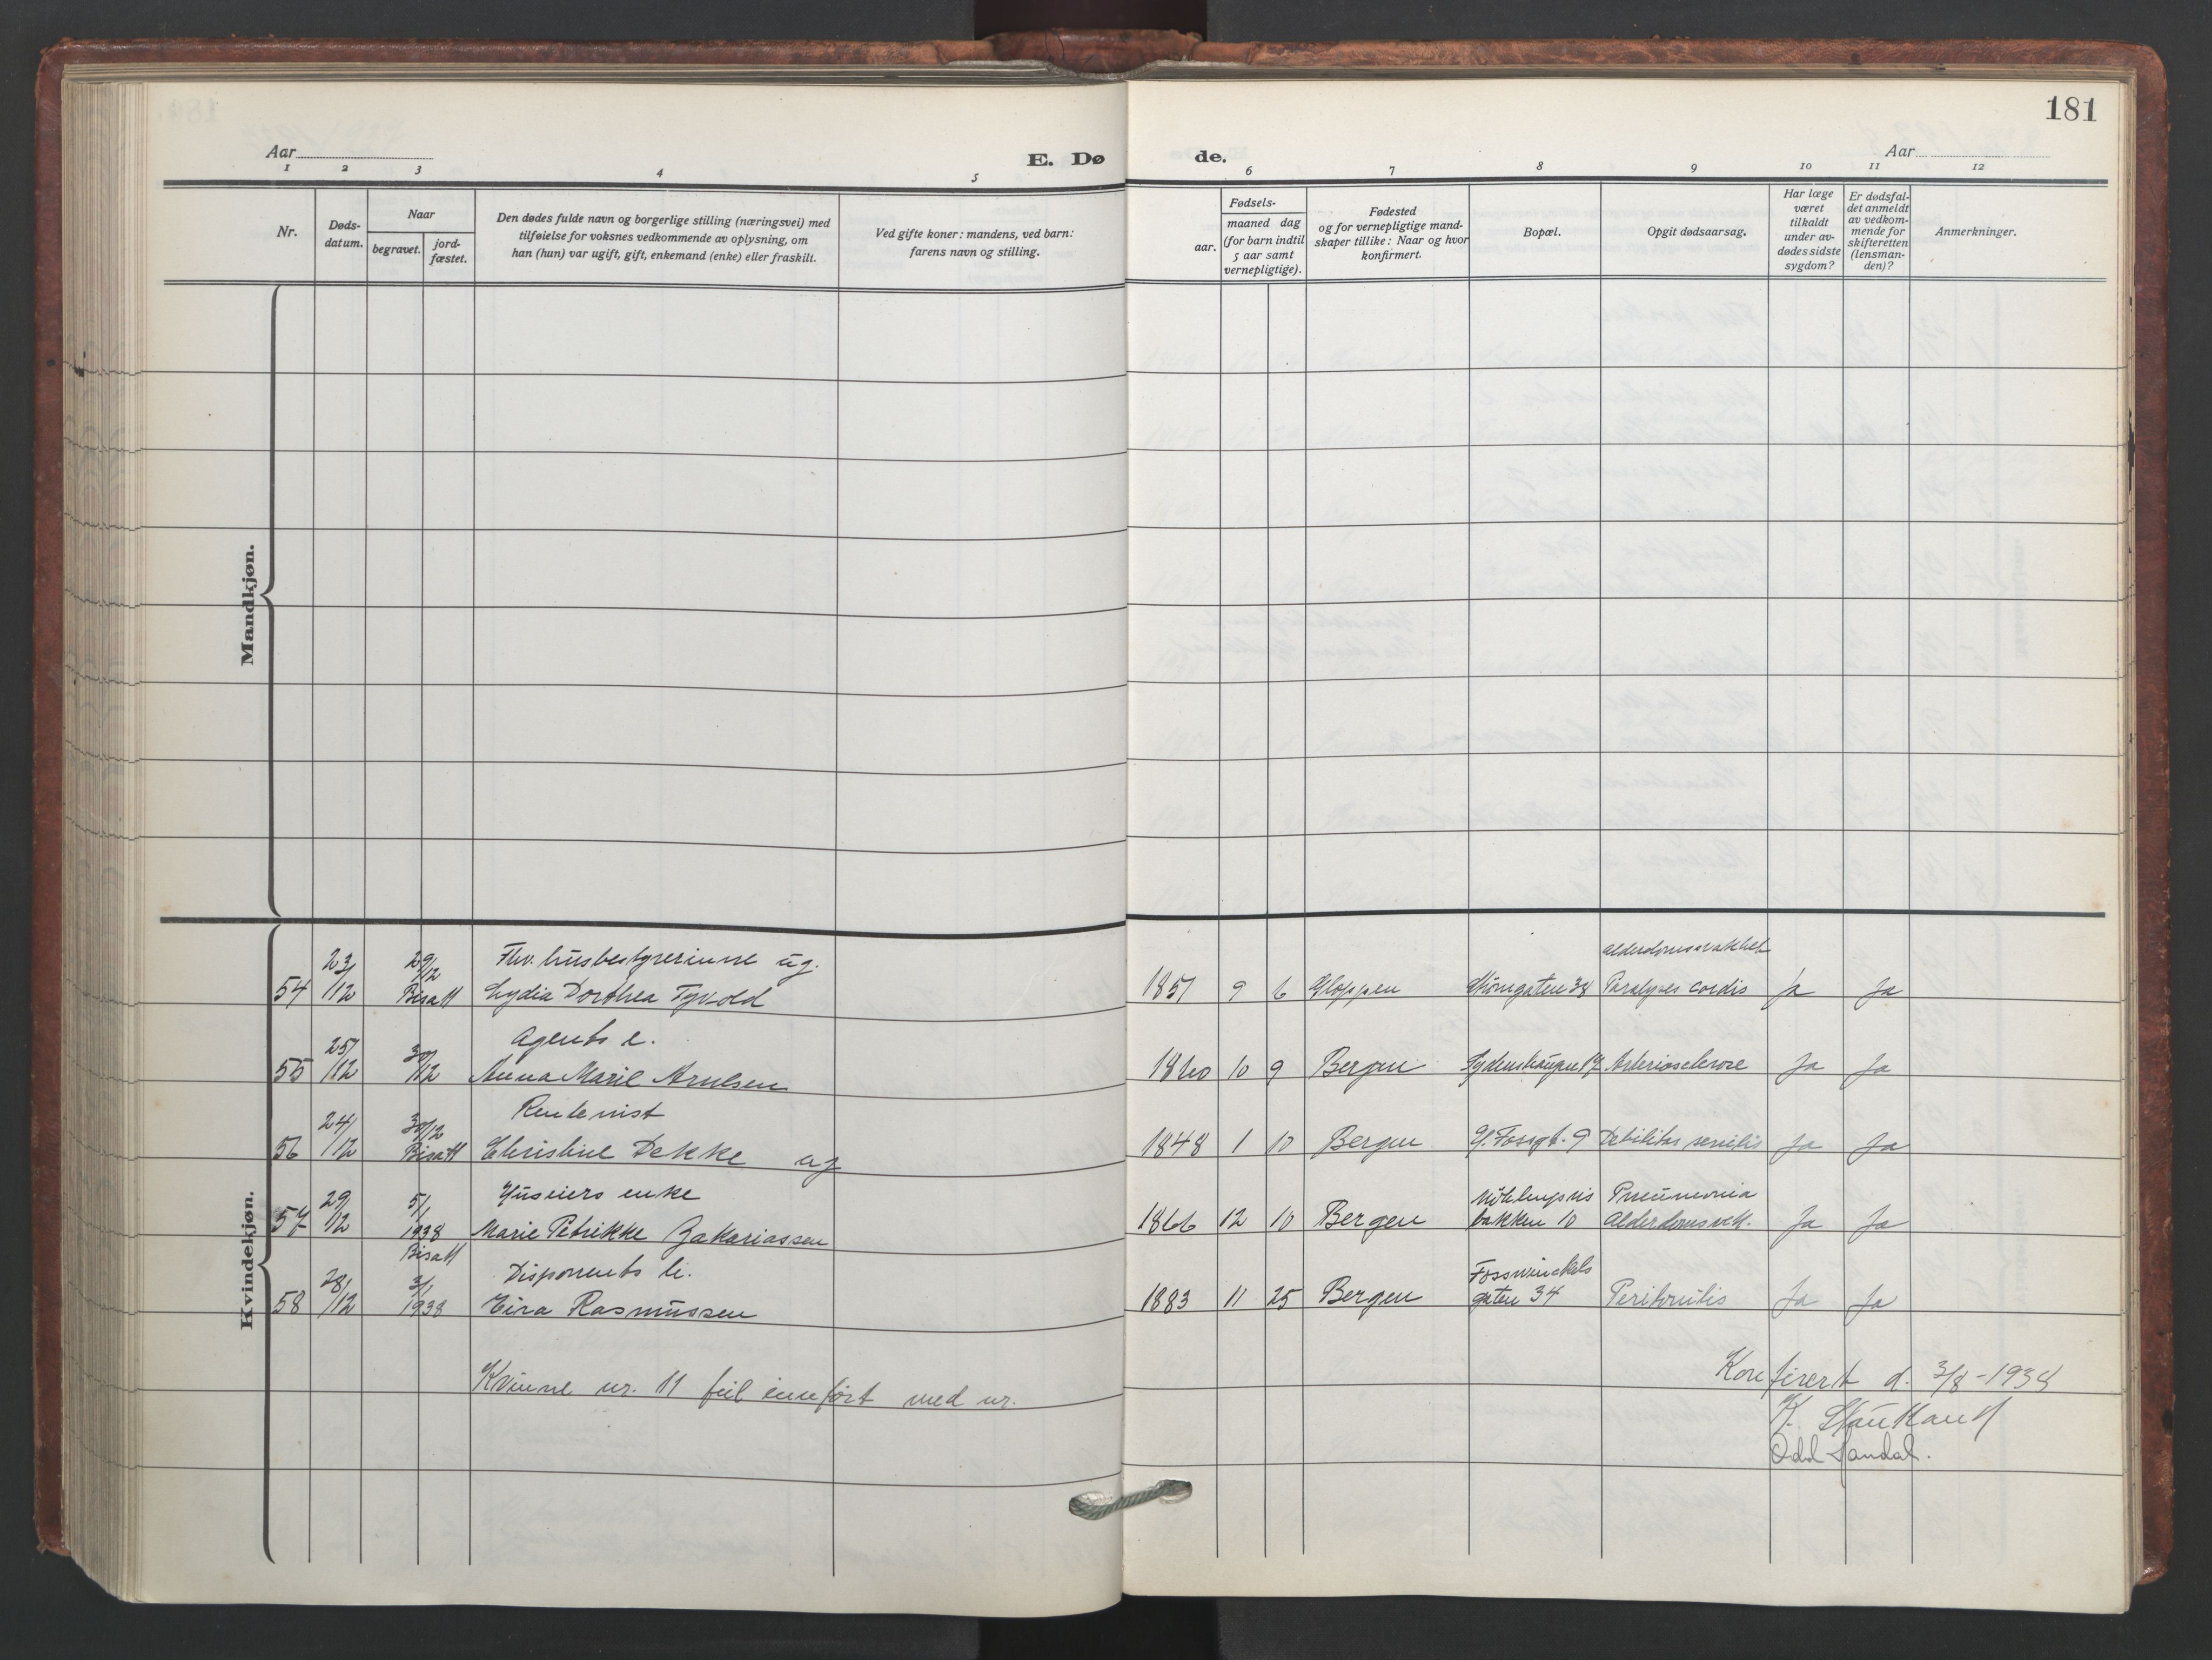 181
Aar
E. Dø
de.
Aar
1 2 3 4 5 6 7 8 9 10 11 12
Nr.
Døds-
datum.
Naar
begravet.
jord-
fæstet.
Den dødes fulde navn og borgerlige stilling (næringsvei) med
tilføielse for voksnes vedkommende av oplysning, om
han (hun) var ugift, gift, enkemand (enke) eller fraskilt.
Ved gifte koner: mandens, ved barn:
farens navn og stilling.
Fødsels-
aar.
maaned dag
(for barn indtil
5 aar samt
vernepligtige).
Fødested
og for vernepligtige mand-
skaper tillike: Naar og hvor
konfirmert.
Bopæl.
Opgit dødsaarsag.
Har læge
været
tilkaldt
under av-
dødes sidste
sygdom?
Er dødsfal-
det anmeldt
av vedkom-
mende for
skifteretten
(lensman-
den)?
Anmerkninger.
Mandkjøn.
Kvindekjøn.
23/ 29/12 Fhv. husbestyrerinne ug. alderdomssvakhet
54 /12 Bisatt Lydia Dorthea Tyvold 1851 9 6 Gloppen 38 Paralyses cordis Ja Ja
25/ Agents e.
55 /12 30/12 Anna Marie Arnesen 1860 10 9 Bergen Sydneshaugen Arteriosclerose Ja Ja
24/ 30/12 Rentenist
56 /12 Bisatt Christine Dekke ug 1848 1 10 Bergen 9 Debilitas senilis Ja Ja
29/ 5/1 Huseiers enke Pneumonia
57 /12 1938 Marie Petrikke Zakariassen 1866 12 10 Bergen bakken 10 Alderdomsvk. Ja Ja
Bisatt
28/ 3/1 Disponents h. Fosswinckels
58 /12 1938 Eira Rasmussen 1883 11 25 Bergen gaten 34 Peritonitis Ja Ja
Kvinne nr. 11 feil innført med nr.
Konfirert d. 3/8-1938
K.
Odd Sandal.